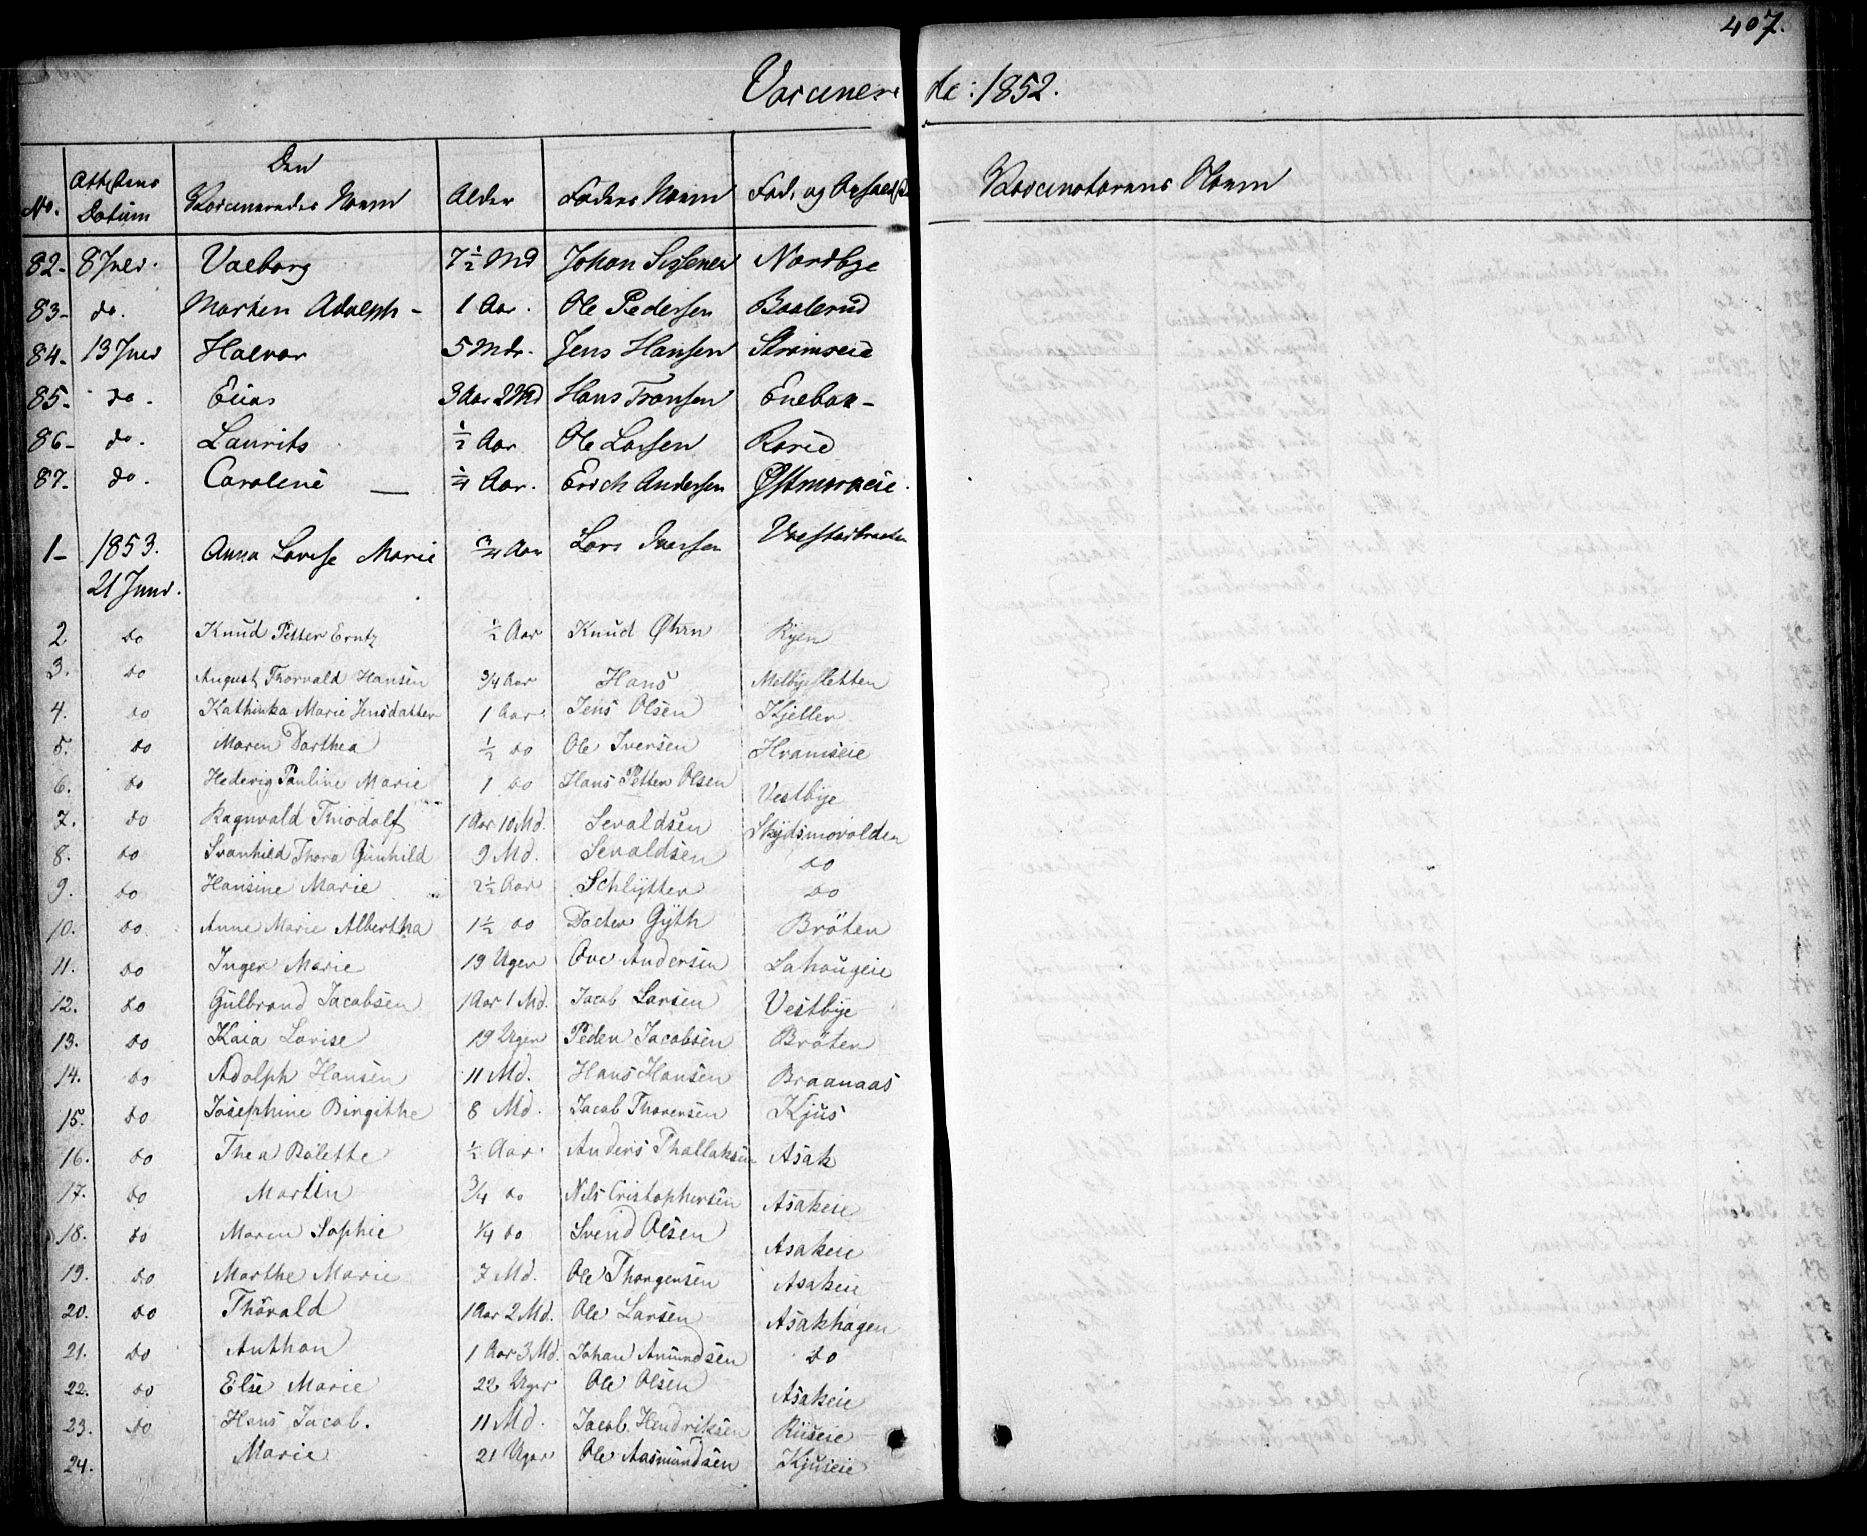 407.
Vaccinerede: 1852.
No. | Attestens Datum | Den Vaccineredes Navn | Alder | Faders Navn | Føde og Opholdsst | Vaccinatorens Navn
82- 8 Juli. Valborg 7 1/2 Md Johan Nordbye
83- do. Morten Adolph - 1 Aar. Ole Pedersen Baalerud
84- 13 Juli Halvor 5 Mdr. Jens Hansen Strømseie
85- do. Elias 3 Aar 2 Md Hans Fransen Enebak-
86- do. Laurits 1/2 Aar Ole Larsen
87. do. Caroline — 1/4 Aar. Erich Andersen Østmorkeie.
1- 1853. Anna Lovise Marie 3/4 Aar Lars Iversen
21 Juni.
2 do Knud Petter Erntz 1/2 Aar Knud Øhrn Ryen
3. do August Thorvald Hansen 3/4 Aar Hans Melbyesletten
4. do Kathinka Marie Jensdatter 1 Aar. Jens Olsen Kjeller
5. do Maren Dorthea 1/2 do Ole Iversen Hvamseie
6. do Hedevig Pauline Marie 1 do Hans Petter Olsen Vestbye
7. do Ragnvald Thiodolf 1 Aar 10 Md. Sevaldsen Skydsmovolden
8. do Svanhild Thora Gunhild 9 Md. Sevaldsen do
9. do Hansine Marie 2 1/2 Aar Schlytter do
10. do. Anne Marie Albertha 1 1/2 do Docter Gÿth Bröten
11. do Inger Marie 19 Uger Ove Andersen Lahaugeie
12. do Gulbrand Jacobsen 1 Aar 1 Md. Jacob Larsen Vestbye
13. do Kaia Lovise 19 Uger Peder Jacobsen Bröten
14. do Adolph Hansen 11 Md. Hans Hansen Braanaas
15. do Josephine Birgithe 8 Md. Jacob Thorersen Kjus
16. do Thea Bolette 1/2 Aar. Anders Thollaksen Asak
17. do Martin 3/4 do Nils Cristophersen Asakeie
18. do Maren Sophie 1/4 do Svend Olsen Asakeie
19. do Marthe Marie 7 Md. Ole Thorgersen Asakeie
20. do Thorald 1 Aar 2 Md. Ole Larsen Asakhagen
21. do Anthon 1 Aar 3 Md. Johan Amundsen do
22. do Else Marie 22 Uger Ole Olsen Asakeie
23. do Hans Jacob. 11 Md. Jacob Hendriksen Riiseie
24. Marie 21 Uger Ole Aasmundsen Kjuseie